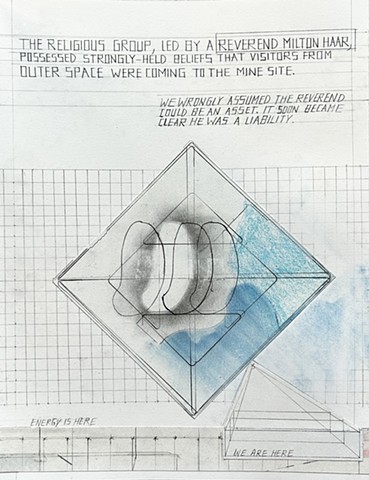 THE RELIGIOUS GROUP, LED BY A REVEREND MILTON HAAR,
POSSESSED STRONGLY-HELD BELIEFS THAT VISITORS FROM
OUTER SPACE WERE COMING TO THE MINE SITE.
WE WRONGLY ASSUMED THE REVEREND
COULD BE AN ASSET. IT SOON BECAME
CLEAR HE WAS A LIABILITY.
ENERGY IS HERE
WE ARE HERE